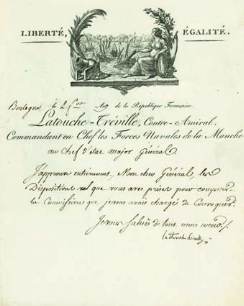 LIBERTÉ, ÉGALITÉ.
Boulogne le 2 an 9 de la République Française
Latouche-Tréville, Contre-Amiral,
Commandant en Chef les Forces Navales de la Manche
au Chef d'état major Général
J'approuve entièrement, Mon cher Général, les
Dispositions que vous avez prises pour composer
la Commission que j'avais chargé de
Je vous salue de tout mon coeur